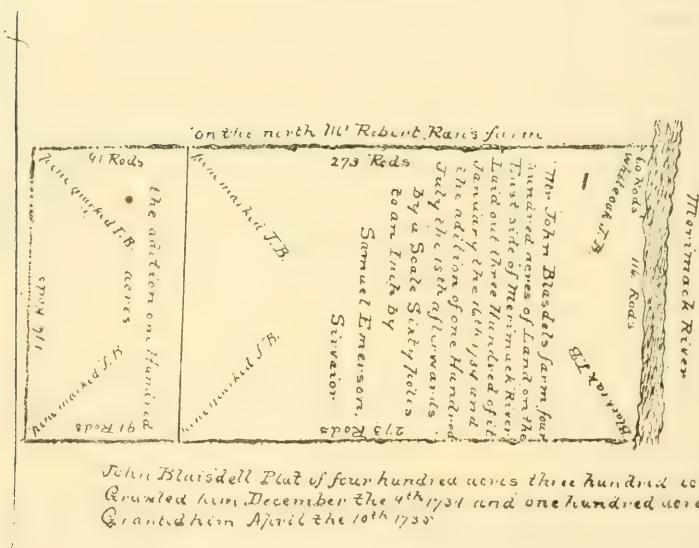 on the north Mr Robert Ran's farm
91 Rods
273 Rods
60 Rods
whiteoak J.B.
Merimack River
116 Rods
pine marked J.B.
pine marked J.B.
the adition one Hundred
acres
116 Rods
Mr John Blasdels farm four
hundred acres of Land on the
East side of Merimuck River
Laid out three Hundred of it
January the 16th 1734 and
the adition of one Hundred
July the 15th afterwards
by a Scale Sixty poles
to an Inch by
Samuel Emerson,
Sirvaior
pine marked J.B.
pine marked J.B.
Black oak J.B.
91 Rods
273 Rods
John Blaisdell Plat of four hundred acres three hundred ac
Granted him December the 4th 1734 and one hundred acre
Granted him April the 10th 1735